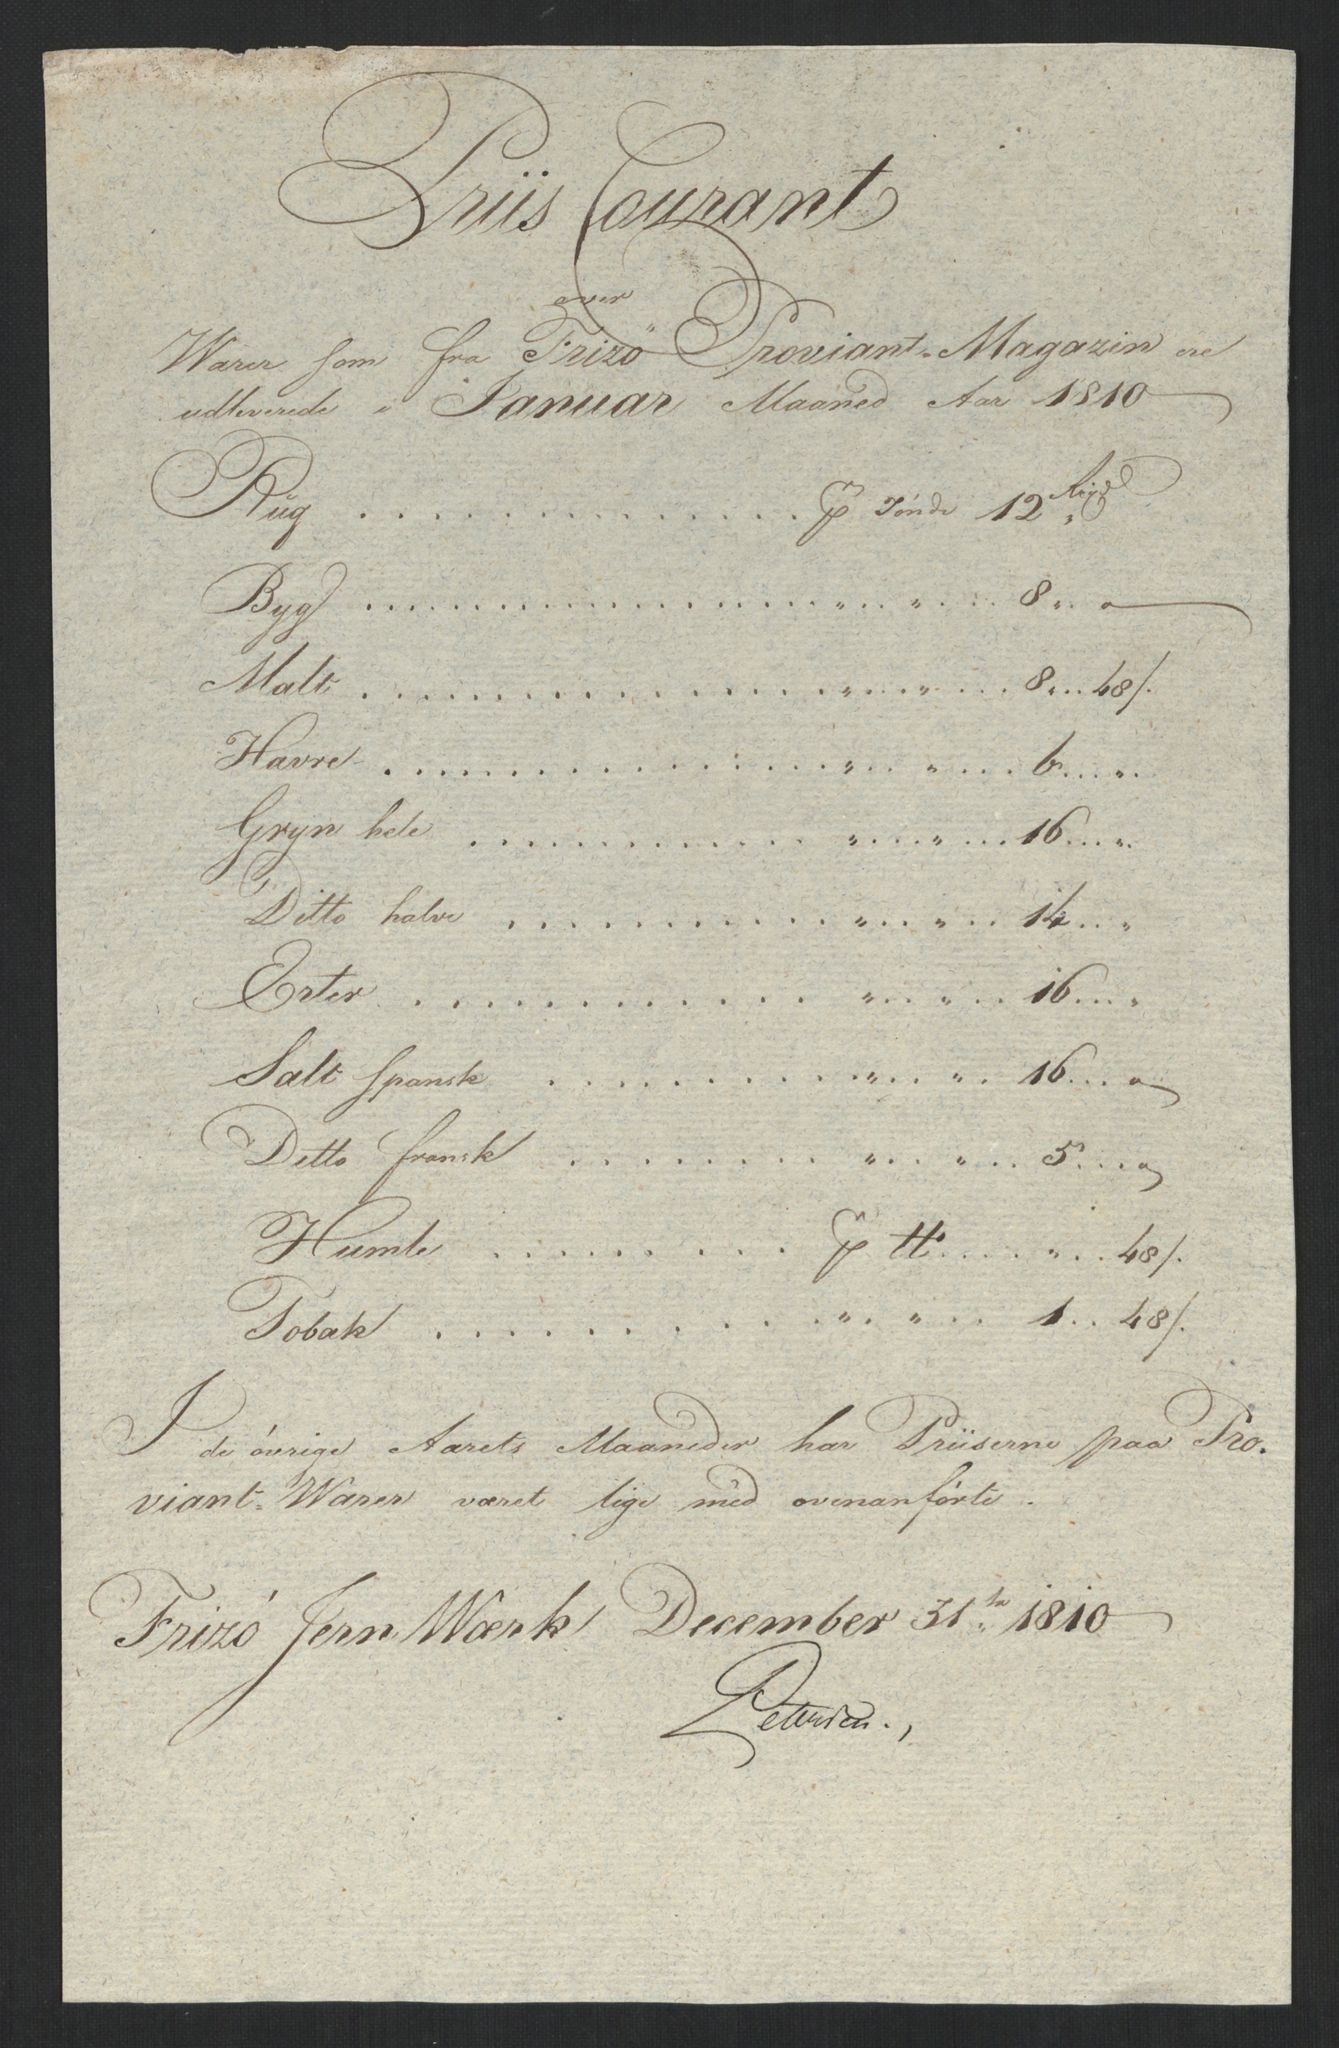 Priis Courant
over
Warer som fra Frizö Proviant-Magazin ere
udleverede i Januar Maaned Aar 1810
Rug . . . . . . . . . . . . . . . . pr Tönde 12 Rigsd
Byg . . . . . . . . . . . . . . . . " . . " . . . 8 . . "
Malt . . . . . . . . . . . . . . . . " . . " . . . 8 . . 48/.
Havre . . . . . . . . . . . . . . . " . . " . . . 6 . . . "
Gryn hele . . . . . . . . . . . . " . . . " . . . 16 . . . "
Ditto halve . . . . . . . . . . . " . . " . . 14 . . "
Erter . . . . . . . . . . . . " . . " . . 16 . . . "
Salt spansk . . . . . . . . . . " . . " . . 16 . . . "
Ditto fransk . . . . . . . . . " . . " . . . 5 . . . "
Humle . . . . . . . . . pr ℔ . . . . " . . 48/.
Tobak . . . . . . . . . . . " . . " . . . 1 . . 48/.
I de övrige Aarets Maaneder har Priiserne paa Pro-
viant-Warer været lige med ovenanförte.
Frizö Jern Wærk December 31te 1810
Pettersen.